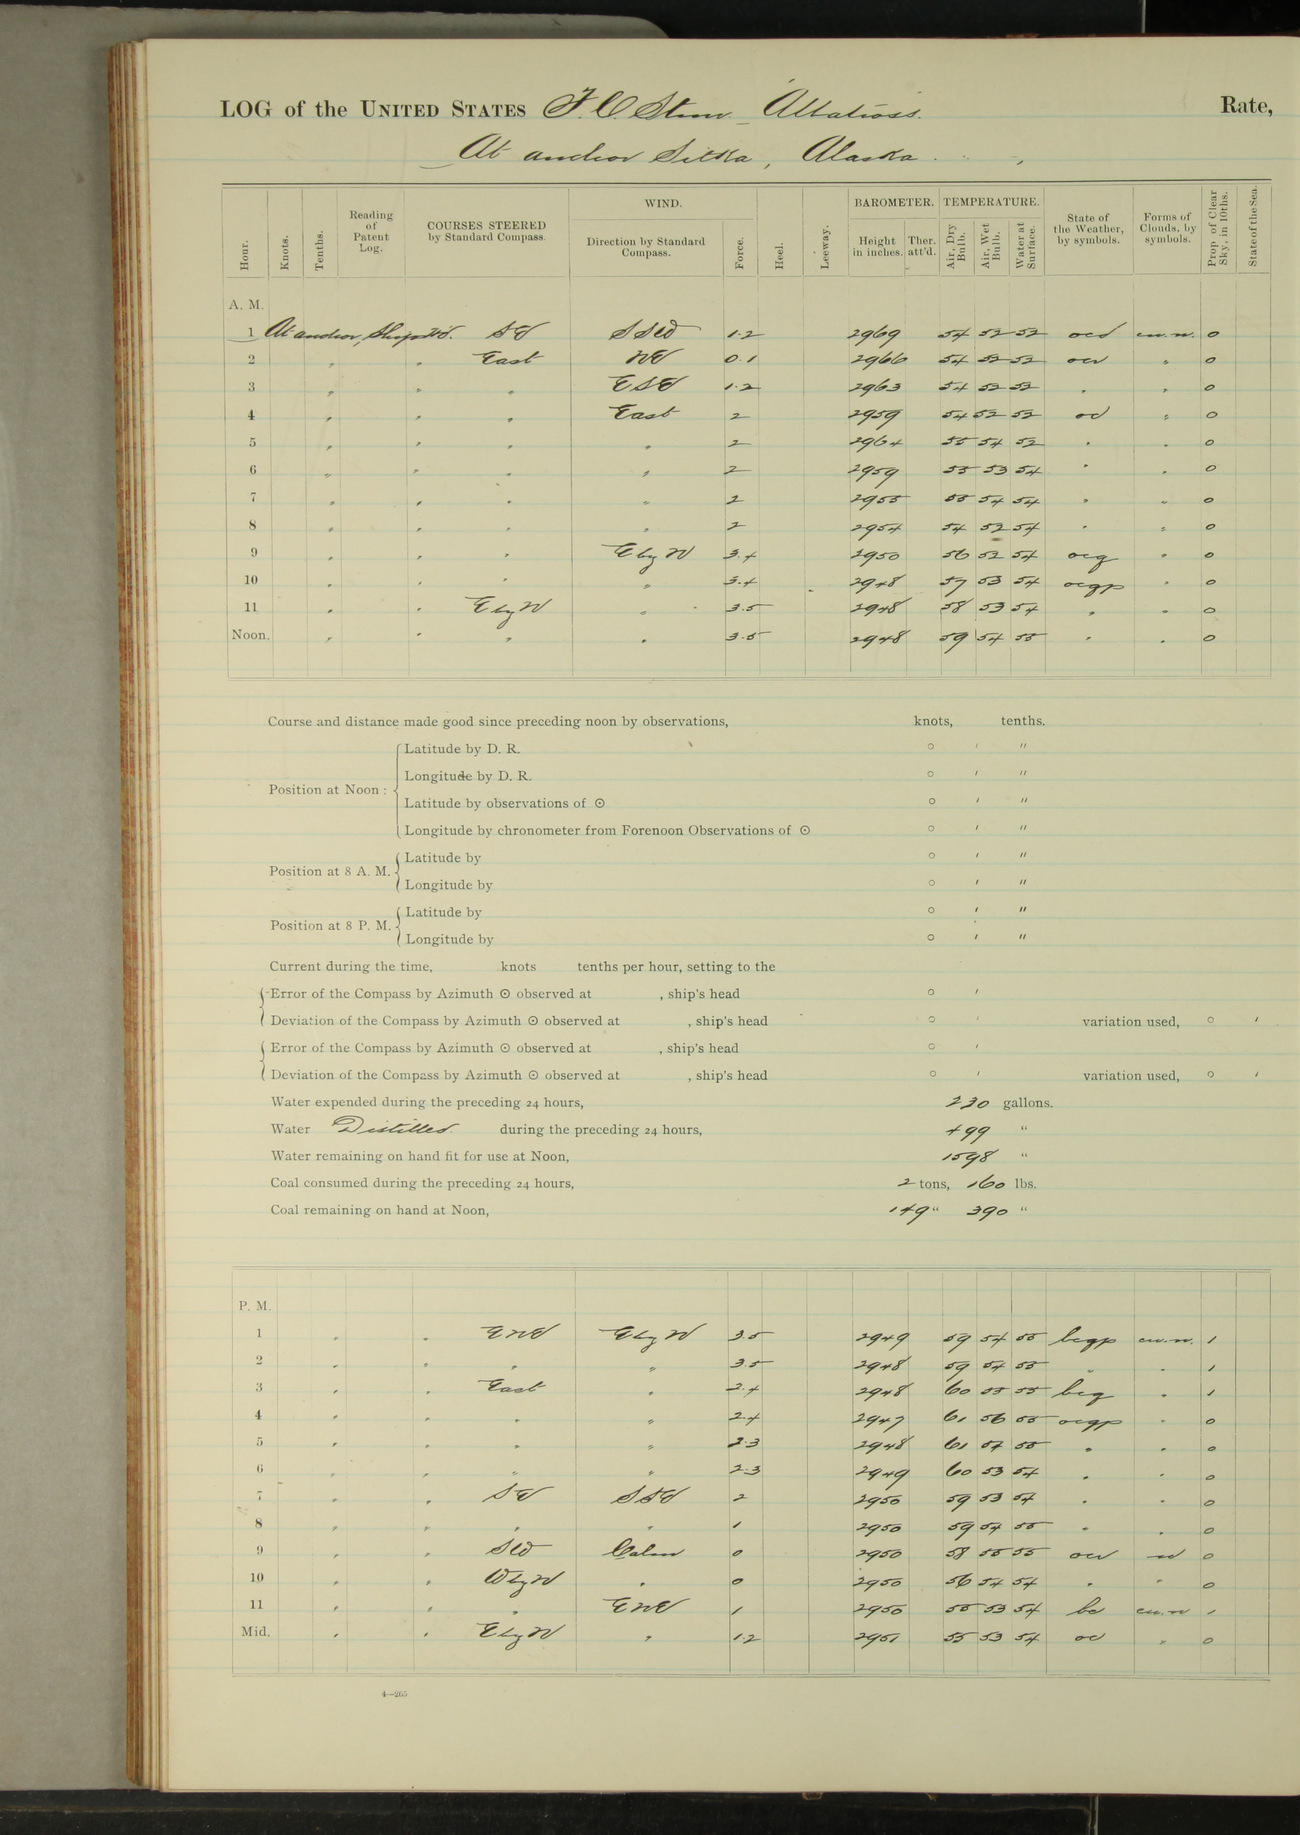 LOG of the UNITED STATES F. C. Stmr. Albatross. Rate,
At anchor Sitka, Alaska.
Hour. Knots. Tenths. Reading of Patent Log. COURSES STEERED by Standard Compass. WIND. Direction by Standard Compass. Force. Heel. Leeway. BAROMETER. Height in inches. Ther. att'd. TEMPERATURE. Air, Dry Bulb. Air, Wet Bulb. Water at Surface. State of the Weather, by symbols. Forms of Clouds, by symbols. Prop. of Clear Sky, in 10ths. State of the Sea.
A. M.
1 At anchor, Ship's Hd. SE SSW 1.2 2969 54 52 52 ocd cu.n. 0
2 " " East NE 0.1 2966 54 52 52 " 0
3 " " " ESE 1.2 2963 54 52 52 " " 0
4 " " " East 2 2959 54 52 52 od " 0
5 " " " " 2 2964 55 54 52 " " 0
6 " " " " 2 2959 55 53 54 " " 0
7 " " " " 2 2955 55 54 54 " " 0
8 " " " " 2 2954 54 52 54 " " 0
9 " " " E by N 3.4 2950 56 52 54 ocq " 0
10 " " " " 3.4 2948 57 53 54 ocqp " 0
11 " " E by N " 3.5 2948 58 53 54 " " 0
Noon. " " " " 3.5 2948 59 54 55 " " 0
Course and distance made good since preceding noon by observations, knots, tenths.
Position at Noon :
Latitude by D. R. ° ′ ″
Longitude by D. R. ° ′ ″
Latitude by observations of ☉ ° ′ ″
Longitude by chronometer from Forenoon Observations of ☉ ° ′ ″
Position at 8 A. M.
Latitude by ° ′ ″
Longitude by ° ′ ″
Position at 8 P. M.
Latitude by ° ′ ″
Longitude by ° ′ ″
Current during the time, knots tenths per hour, setting to the
Error of the Compass by Azimuth ☉ observed at , ship's head ° ′
Deviation of the Compass by Azimuth ☉ observed at , ship's head ° ′ variation used, ° ′
Error of the Compass by Azimuth ☉ observed at , ship's head ° ′
Deviation of the Compass by Azimuth ☉ observed at , ship's head ° ′ variation used, ° ′
Water expended during the preceding 24 hours, 230 gallons.
Water Distilled during the preceding 24 hours, 499 "
Water remaining on hand fit for use at Noon, 1598 "
Coal consumed during the preceding 24 hours, 2 tons, 160 lbs.
Coal remaining on hand at Noon, 149 " 390 "
P. M.
1 " " ENE E by N 3.5 2949 59 54 55 bcqp cu.n. 1
2 " " " " 3.5 2948 59 54 55 " " 1
3 " " East " 2.4 2948 60 55 55 bcq " 1
4 " " " " 2.4 2947 61 56 55 ocqp " 0
5 " " " " 2.3 2948 61 57 55 " " 0
6 " " " " 2.3 2949 60 53 54 " " 0
7 " " SE SSE 2 2950 59 53 54 " " 0
8 " " " " 1 2950 59 54 55 " " 0
9 " " SW Calm 0 2950 58 55 55 0
10 " " W by N " 0 2950 56 54 54 " " 0
11 " " " ENE 1 2950 55 53 54 bc cu.n 1
Mid. " " E by N " 1.2 2951 55 53 54 oc " 0
4—265